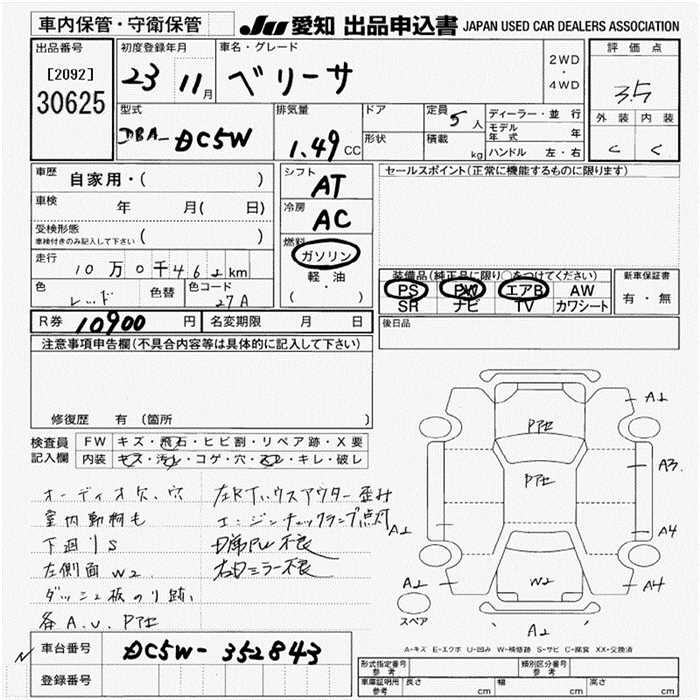 車内保管・守衛保管
JU 愛知 出品申込書 JAPAN USED CAR DEALERS ASSOCIATION
出品番号
[2092]
30625
初度登録年月
23 11月
車名・グレード
ベリーサ
2WD
・
4WD
評価点
3.5
外装 内装
C C
型式
DBA-DC5W
排気量
1.49CC
ドア
形状
定員 5人
積載 kg
ディーラー・並行
モデル年式 年
ハンドル 左・右
車歴 自家用・( )
車検 年 月( 日)
受検形態
車検付きのみ記入して下さい ( )
走行 10万0千462km
色 レッド 色替 色コード 27A
シフト AT
冷房 AC
燃料 ガソリン
軽・油
( ・ )
セールスポイント(正常に機能するものに限ります)
装備品(純正品に限り○をつけてください)
PS PW エアB AW
SR ナビ TV カワシート
新車保証書
有・無
R券 10900円 名変期限 月 日
後日品
注意事項申告欄(不具合内容等は具体的に記入して下さい)
修復歴 有 (箇所 )
検査員記入欄 FW キズ・飛石・ヒビ割・リペア跡・X要
内装 キズ・汚レ・コゲ・穴・スレ・キレ・破レ
オーディオ欠、穴
室内動物毛
下廻りS
左側面W2
ダッシュ板のり跡
各A.U.Pアセ
左Rドハウスアウター歪み
エンジンチェックランプ点灯
D席PW不良
右Dミラー不良
A1
Pアセ
Pアセ
A3
A1
A4
A2
W2
A4
スペア
A2
A-キズ E-エクボ U-凹み W-補修跡 S-サビ C-腐食 XX-交換済
車台番号 DC5W-352843
登録番号
形式指定番号 参考
類別区分番号 参考
車庫証明用 参考 長さ cm 幅 cm 高さ cm